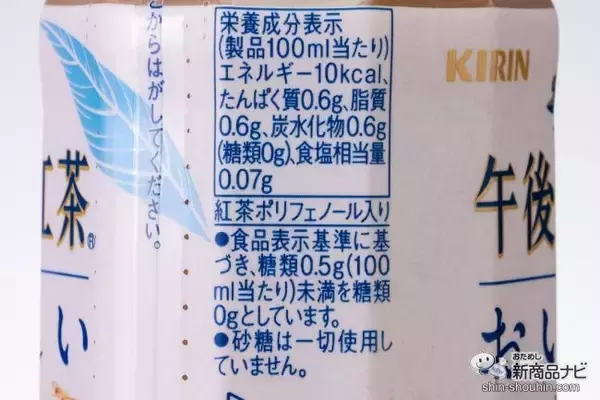 こからはがしてください。
栄養成分表示
(製品100ml当たり)
エネルギー10kcal、
たんぱく質0.6g、脂質
0.6g、炭水化物0.6g
(糖類0g)、食塩相当量
0.07g
紅茶ポリフェノール入り
●食品表示基準に基
づき、糖類0.5g(100
ml当たり)未満を糖類
0gとしています。
●砂糖は一切使用し
ていません。
KIRIN
紅茶®
い
午後
おい
おためし
新商品ナビ
shin-shouhin.com